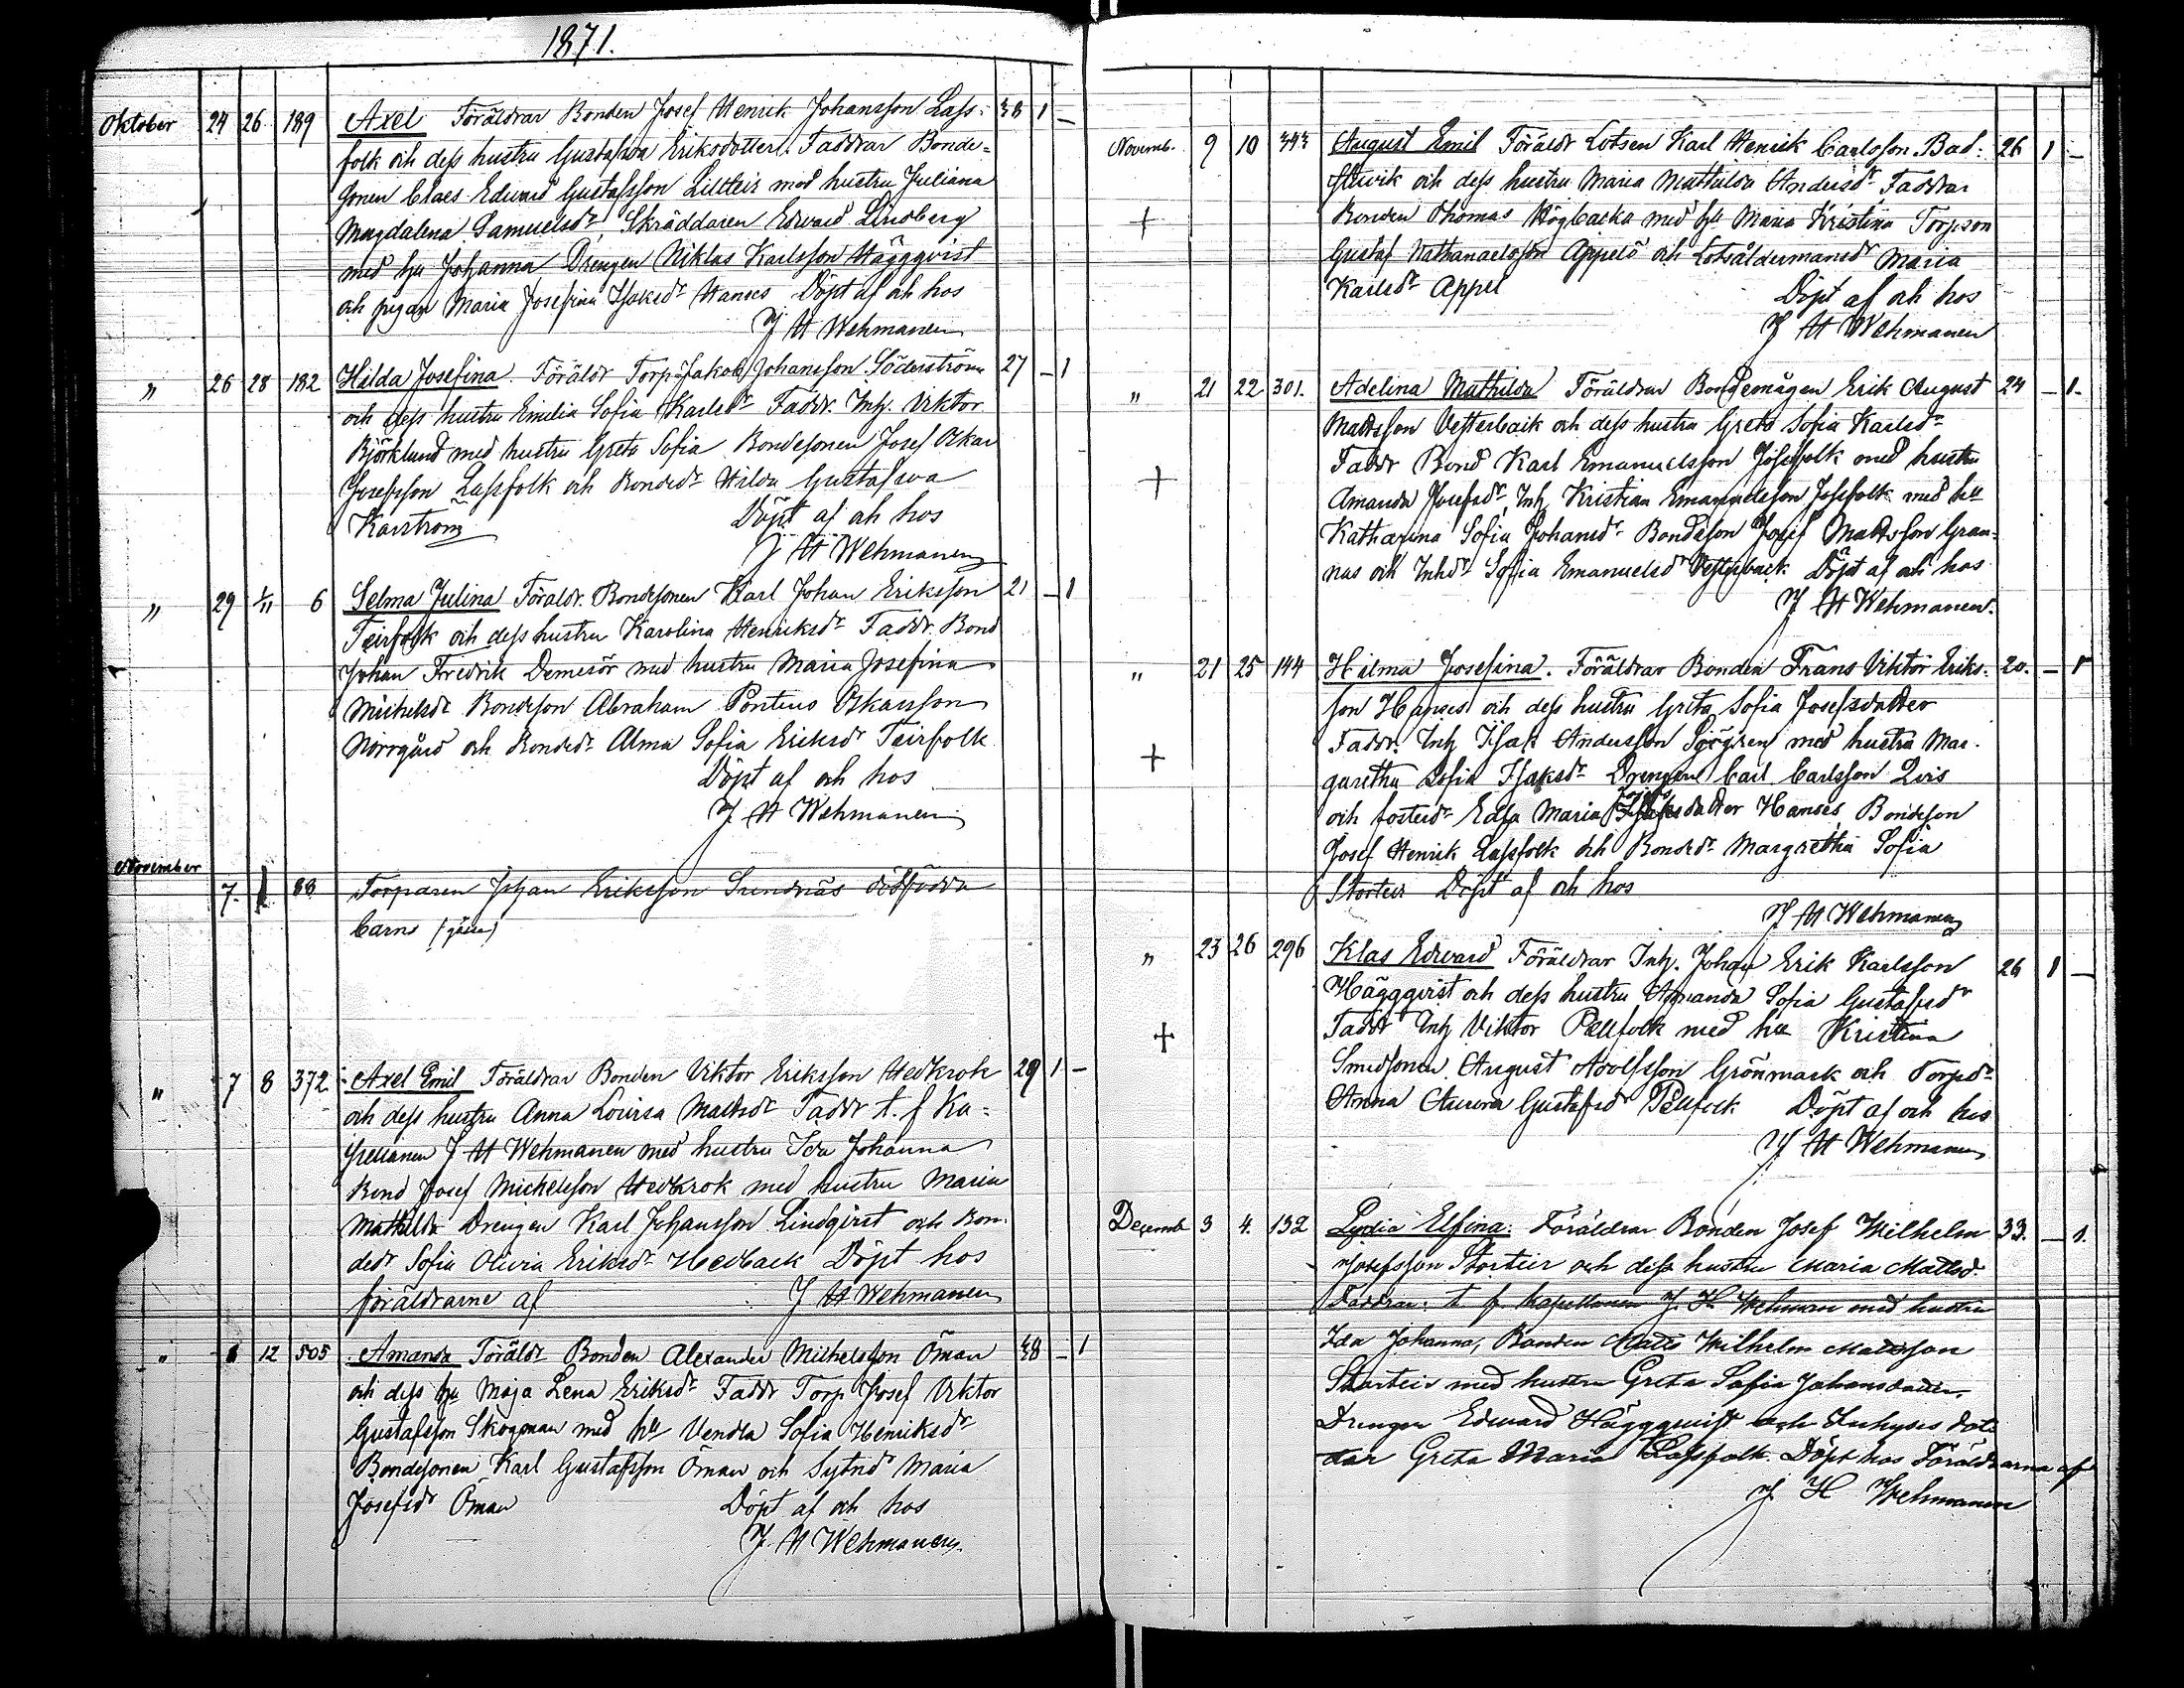 1871.
Oktober 24 26 189 Axel Föräldrar Bonden Josef Henrik Johansson Lass- 38 1 –
folk och dess hustru Gustafva Eriksdotter. Faddrar Bonde-
sonen Claes Edvard Gustafsson Lillteir med hustru Juliana
Magdalena Samuelsdr, Skräddaren Edvard Lindberg
med hu Johanna Drengen Niklas Karlsson Häggqvist
och pigan Maria Josefina Isaksdr Hanses Döpt af och hos
J H Wehmanen
„ 26 28 182 Hilda Josefina. Föräldr Torp Jakob Johansson Söderström 27 – 1
och dess hustru Emilia Sofia Karlsdr Faddr. Inh. Viktor
Björklund med hustru Greta Sofia Bondesonen Josef Oskar
Josefsson Lassfolk och Bondedr Hilda Gustafva
Karström Döpt af och hos
J H Wehmanen
„ 29 1/11 6 Selma Julina Föräldr. Bondesonen Karl Johan Eriksson 21 – 1
Teirfolk och dess hustru Karolina Henriksdr Faddr. Bond
Johan Fredrik Demesör med hustru Maria Josefina
Michelsdr Bondeson Abraham Pontius Oskarsson
Norrgård och Bondedr Alma Sofia Eriksdr Teirfolk
Döpt af och hos
J. H Wehmanen
November
7. 1 88 Torparen Johan Eriksson Sundnäs dödfödda
barns
„ 7 8 372 Axel Emil Föräldrar Bonden Viktor Eriksson Hedkrok 29 1 –
och dess hustru Anna Lovisa Mattsdr Faddr t. f Ka-
pellanen J H Wehmanen med hustru Ida Johanna
Bond Josef Michelsson Hedkrok med hustru Maria
Mathilda Drengen Karl Johansson Lindqvist och Bon-
dedr Sofia Olivia Eriksdr Hedback Döpt hos
föräldrarne af J H Wehmanen
„ 8 12 505 Amanda Föräldr Bonden Alexander Michelsson Öman 38 – 1
och dess hu Maja Lena Eriksdr Faddr Torp Josef Viktor
Gustafsson Skogman med hu Vendla Sofia Henriksdr
Bondesonen Karl Gustafsson Öman och Sytnd Maria
Josefsdr Öman Döpt af och hos
J. H Wehmanen
Novemb. 9 10 393 August Emil Föräldr Lotsen Karl Henrik Carlsson Bad- 26 1 –
stuvik och dess hustru Maria Mathilda Andersdr Faddrar
Bonden Thomas Högbacka med hu Maria Kristina Torpson
Gustaf Nathanaelsson Appelö och Lotsåldermansdr Maria
Karlsdr Appel Döpt af och hos
J H Wehmanen
„ 21 22 301. Adelina Mathilda Föräldrar Bondemågen Erik August 24 – 1.
Mattsson Vesterback och dess hustru Greta Sofia Karlsdr
Faddr Bond Karl Emanuelsson Jossfolk med hustru
Amanda Josefsdr, Inh Kristian Emanuelsson Jossfolk med hu
Katharina Sofia Johansdr Bondeson Josef Mattsson Gran-
nas och Inhdr Sofia Emanuelsdr Vesterback Döpt af och hos
J H Wehmanen.
„ 21 25 144 Hilma Josefina. Föräldrar Bonden Frans Viktor Eriks- 20. – 1
son Hanses och dess hustru Greta Sofia Josefsdotter
Faddr. Inh Isak Andersson Sjögren med hustru Mar-
garetha Sofia Isaksdr Drengen Carl Carlsson Qvis
och fosterdr Edla Maria Josefsdotter Hanses, Bondeson
Josef Henrik Lassfolk och Bondedr Margaretha Sofia
Storteir Döpt af och hos
J H Wehmanen
„ 23 26 296 Klas Edvard Föräldrar Inh. Johan Erik Karlsson 26 1 –
Häggqvist och dess hustru Amanda Sofia Gustafsdr
Faddr Inh Viktor Pellfolk med hu Kristina
Smedsonen August Adolfsson Grönmark och Torpdr
Anna Aurora Gustafsdr Pellfolk Döpt af och hos
J H Wehmanen
Decemb 3 4. 132 Lydia Elfina. Föräldrar Bonden Josef Wilhelm 33. – 1.
Josefsson Storteir och dess hustru Maria Mattsd.
Faddrar: t f kapellanen J. H. Wehman med hustru
Ida Johanna, Bonden Matts Wilhelm Mattsson
Storteir med hustru Greta Sofia Johansdotter,
Drengen Edward Häggqvist och Inhyses dot-
ter Greta Maria Lassfolk. Döpt hos Föräldrarna af
J H Wehmanen